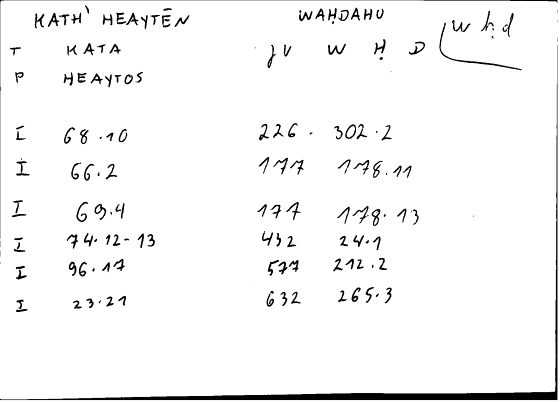 KATH' HEAYTĒN WAḤDAHU
T KATA JV W Ḥ D wḥd
P HEAYTOS
I 68.10 226. 302.2
I 66.2 177 178.11
I 69.4 177 178.13
I 74.12-13 432 24.1
I 96.17 577 212.2
I 23.21 632 265.3